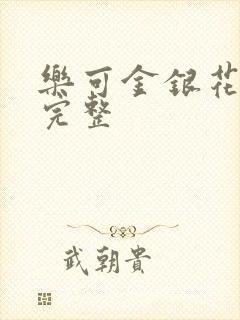 樂可金銀花
完整
武朝貴